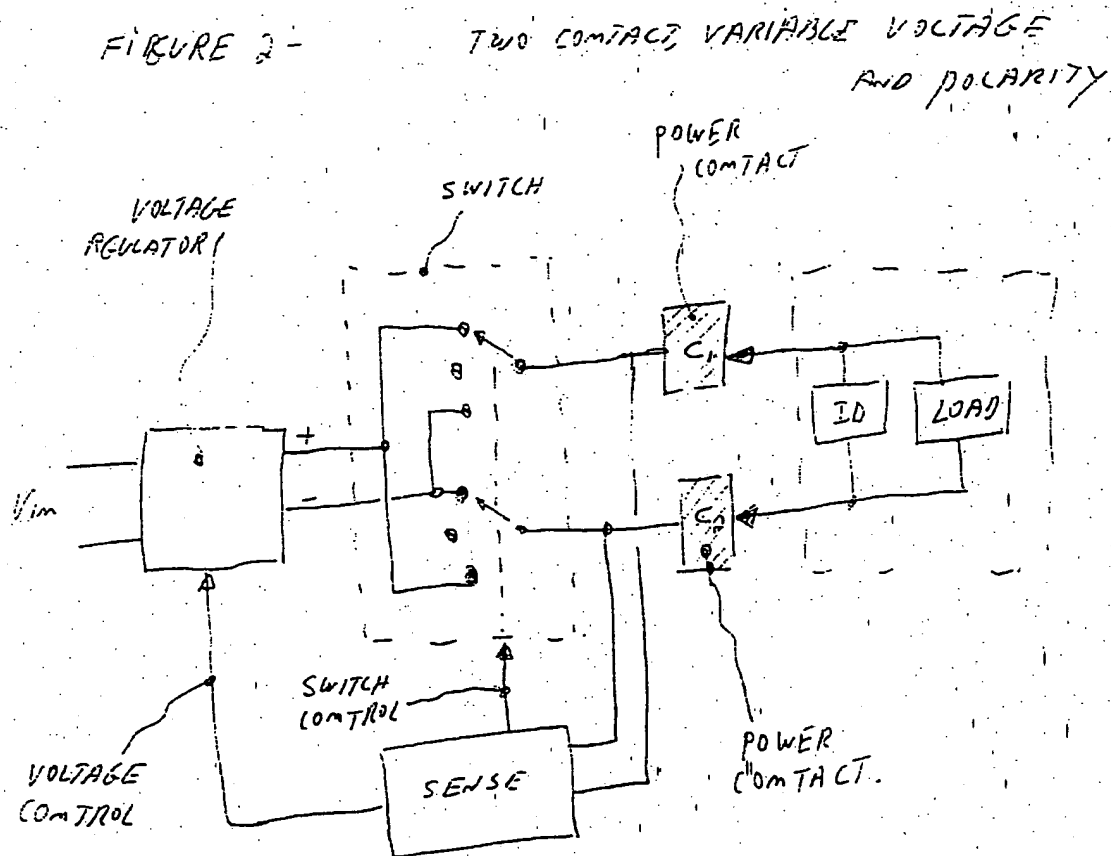 FIGURE 2-
TWO CONTACT, VARIABLE VOLTAGE
AND POLARITY
POWER
CONTACT
SWITCH
VOLTAGE
REGULATOR
C1
ID
LOAD
+
-
Vin
C2
SWITCH
CONTROL
SENSE
VOLTAGE
CONTROL
POWER
CONTACT.